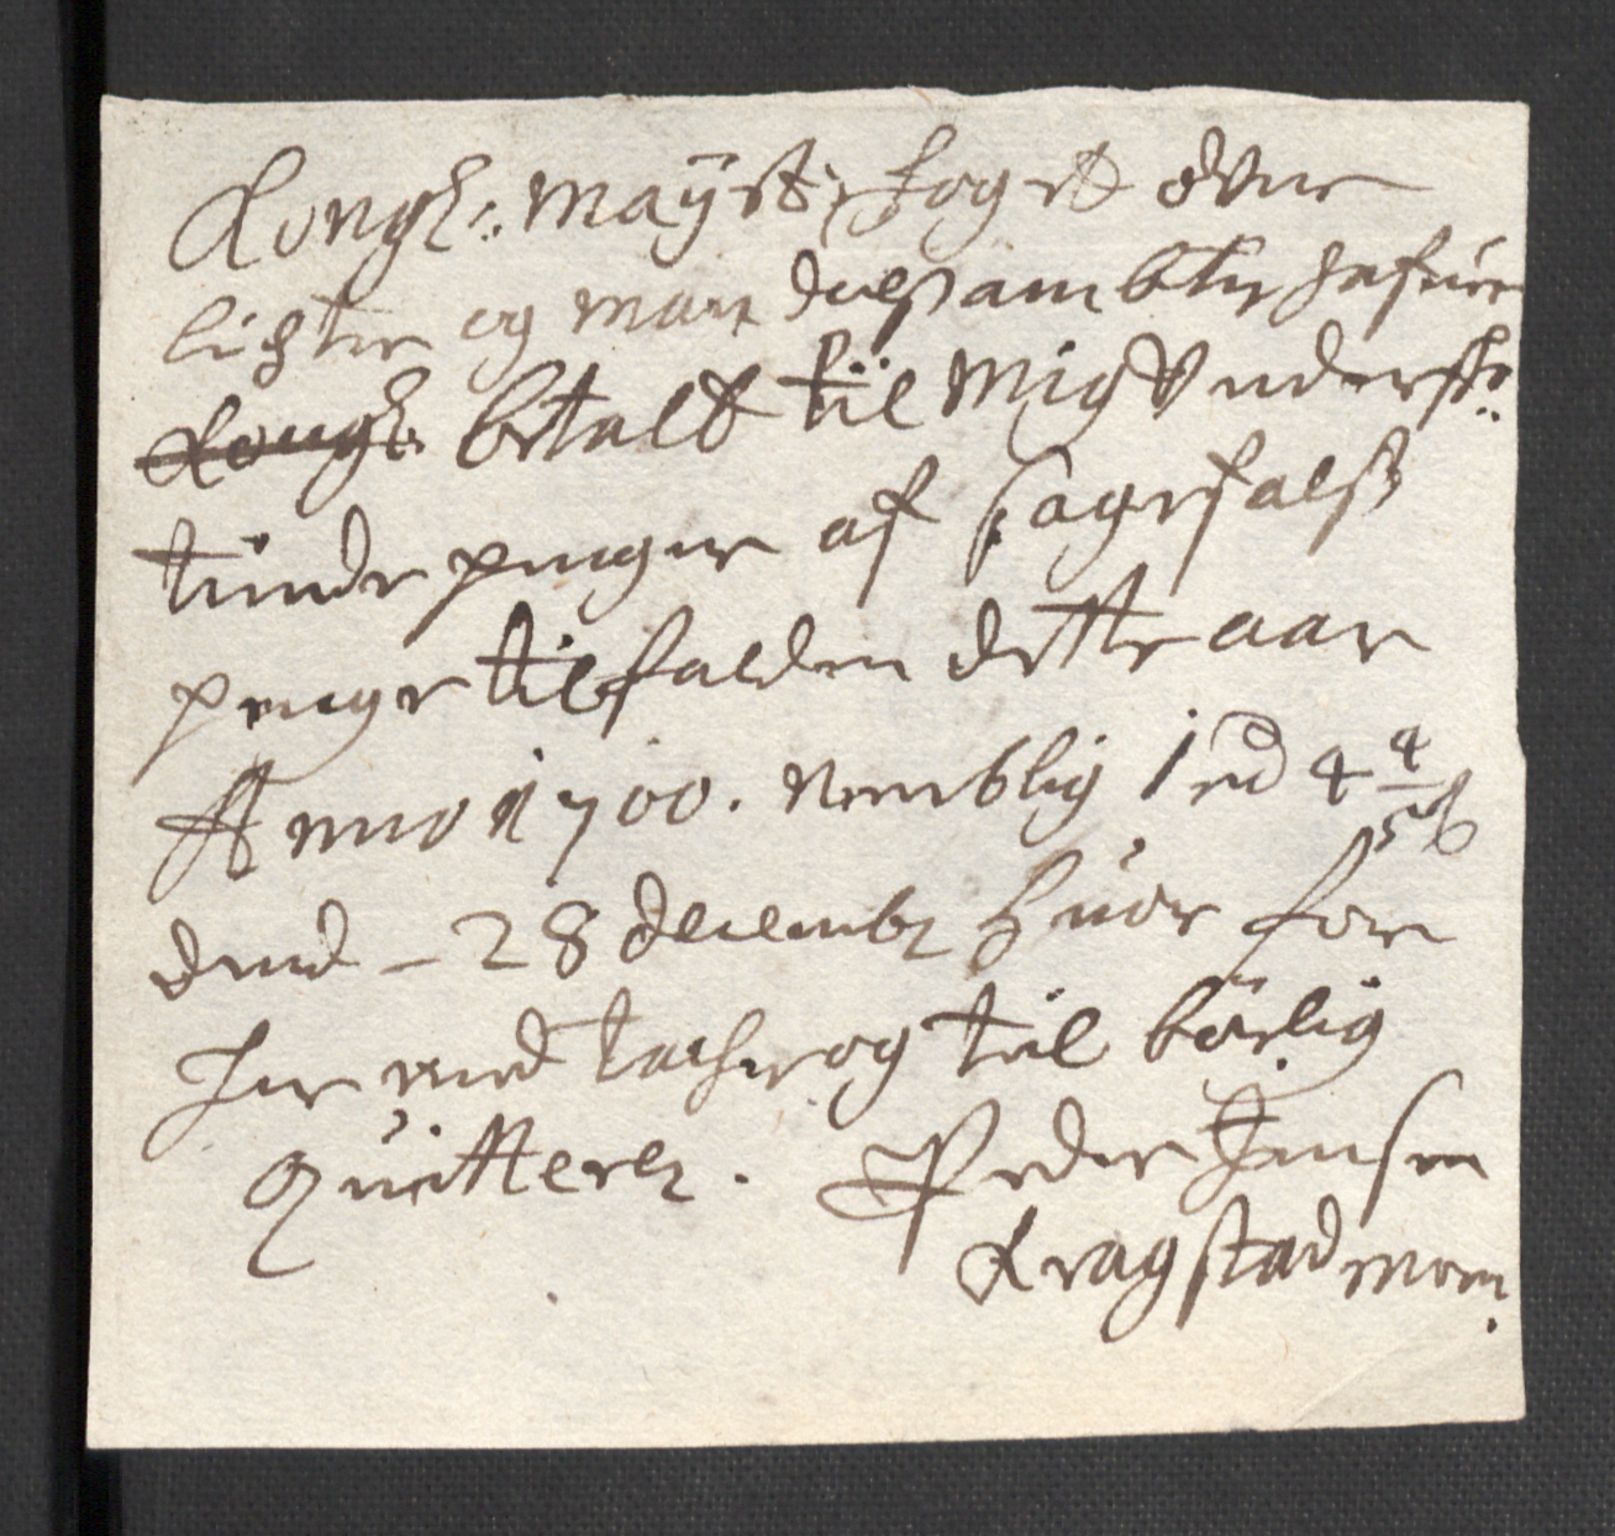 Kongl: Mayst: fogit ofver
lister og mandals ambter hafuer
Kongl: betalt til Mig Underskr:
tiinde penger af sagefalss
penge tilfalden dette aar
Anno 1700. Nemblig 1 rd 4 4/5 ß
dend - 28 decembr huor for
Jeg med tacher og til börlig
quitterer. Peder Jensen
Kragstad mom.